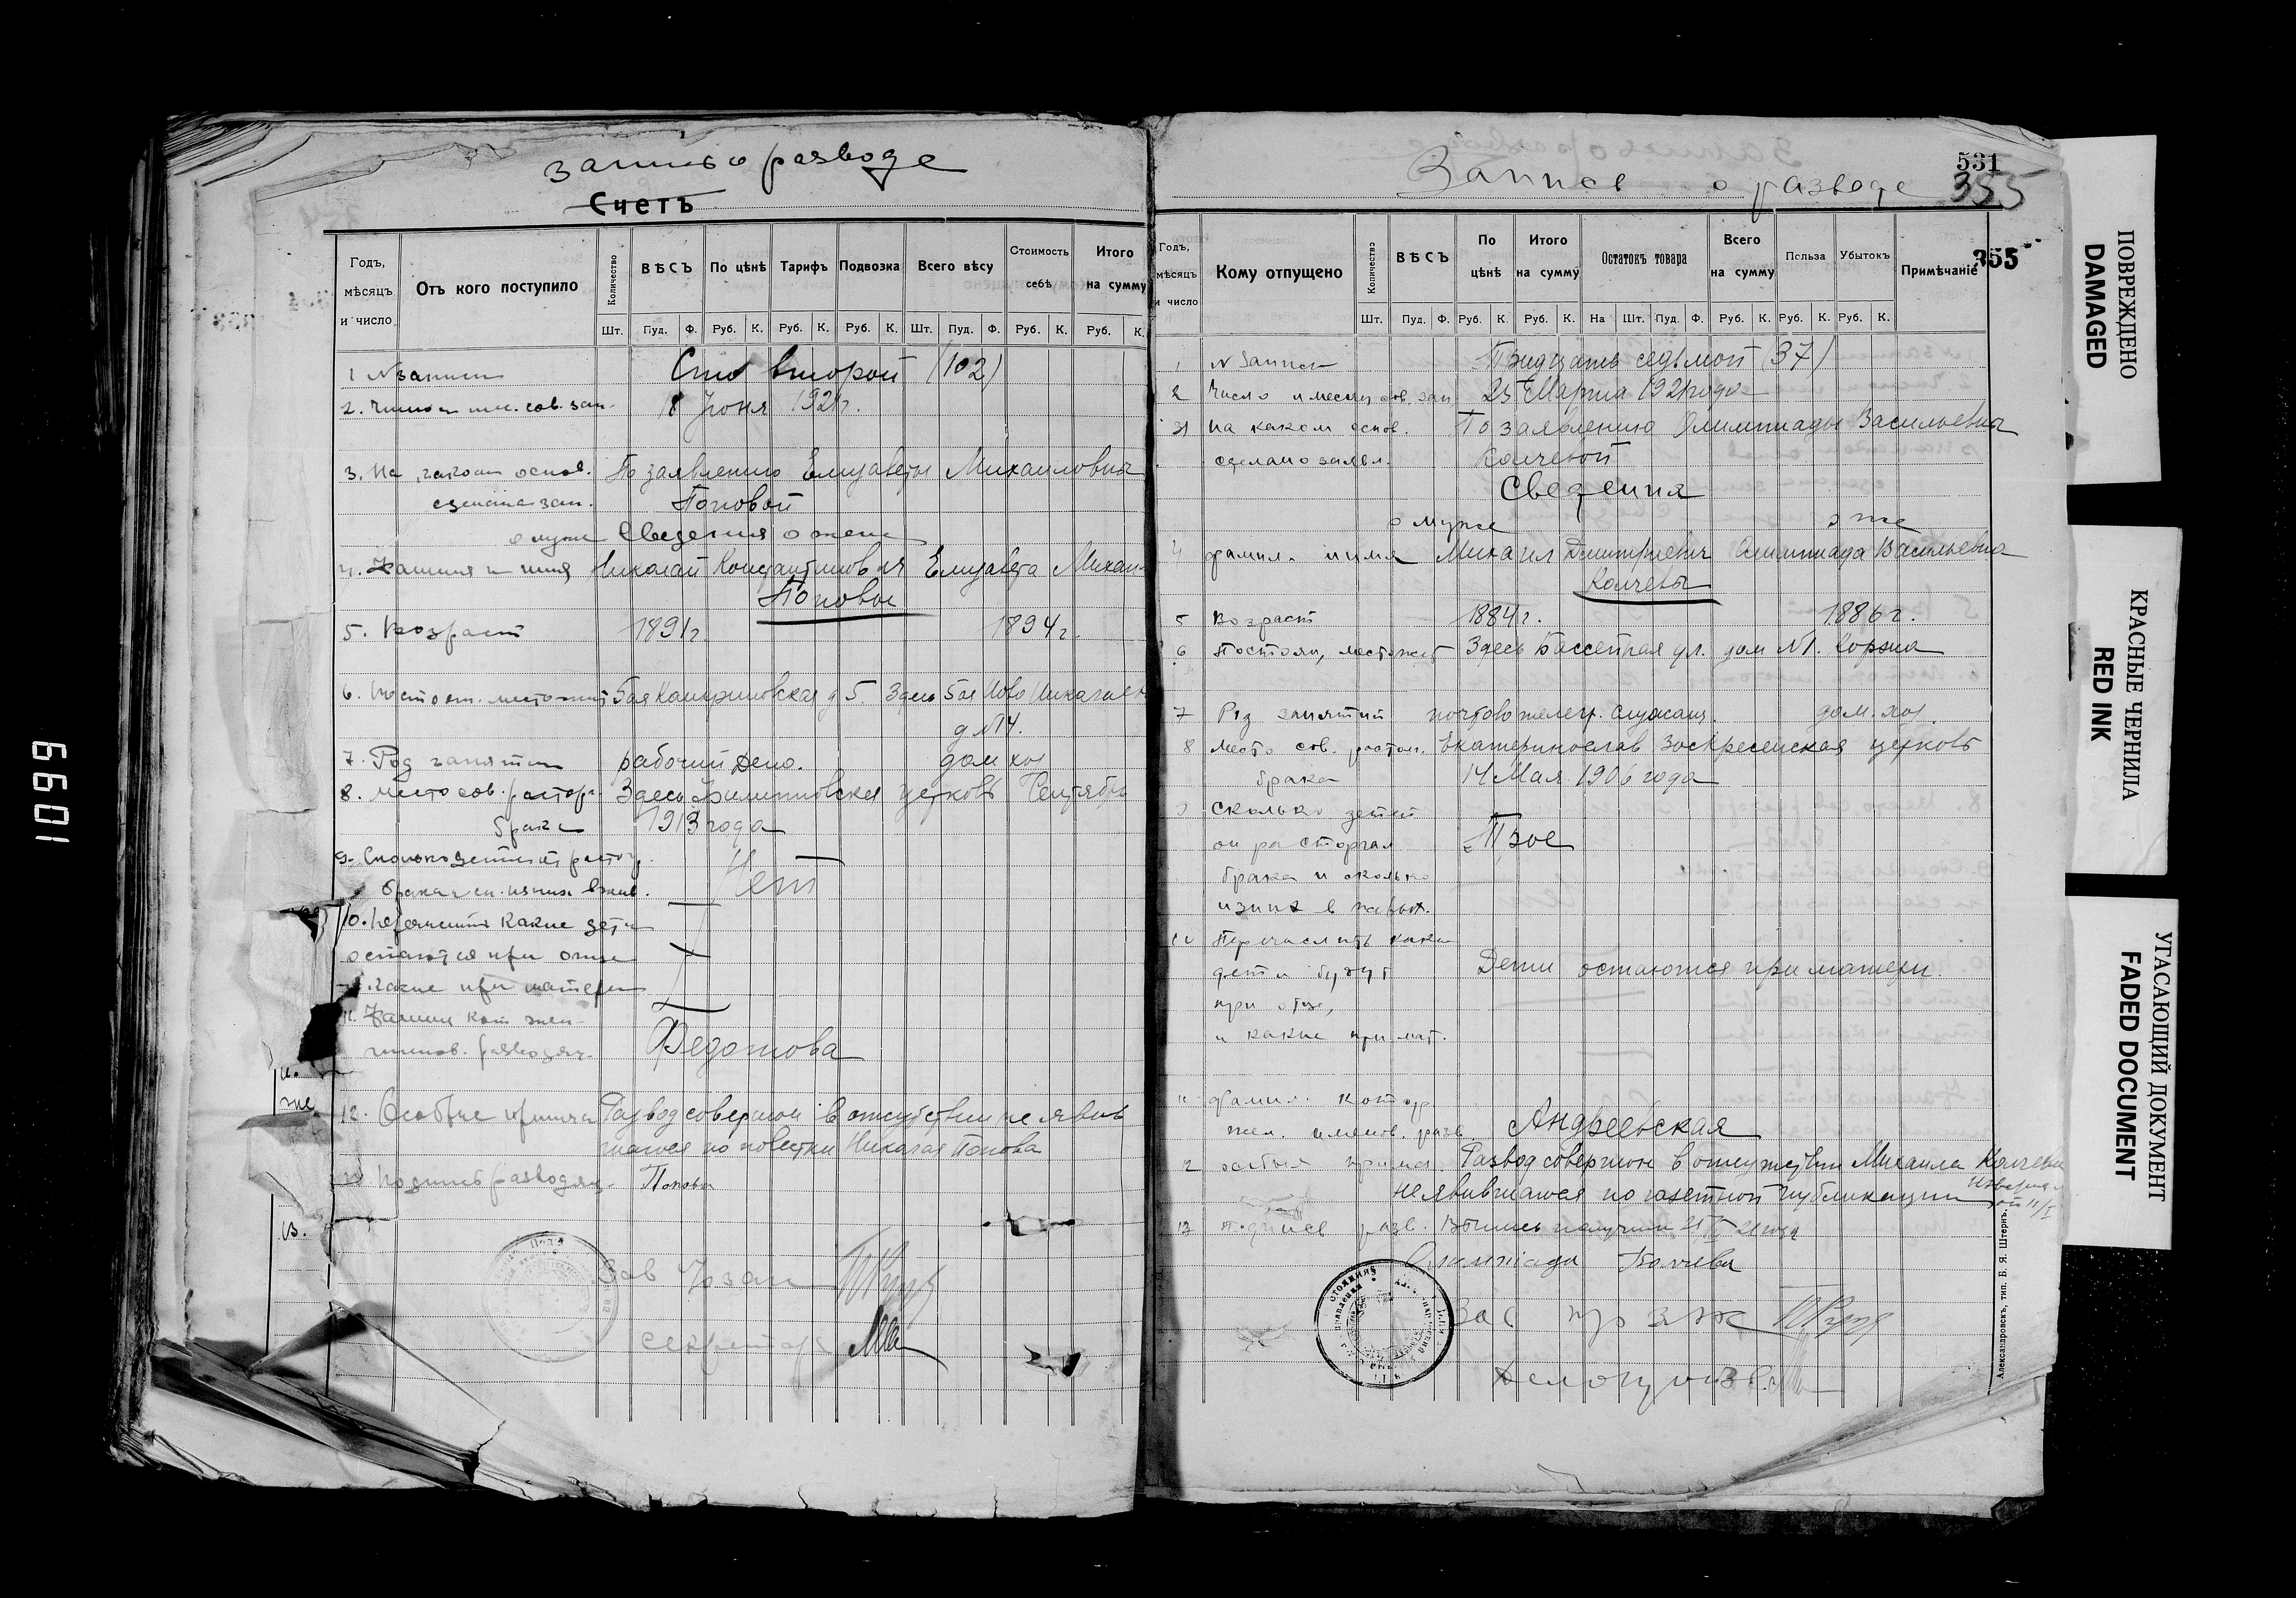 запись о разводе
Счетъ
Годъ, мѣсяцъ и число
Отъ кого поступило
Количество
ВѢСЪ
По цѣнѣ
Тарифъ
Подвозка
Всего вѣсу
Стоимость себѣ
Итого на сумму
Шт. Пуд. Ф. Руб. К. Руб. К. Руб. К. Шт. Пуд. Ф. Руб. К. Руб. К.
1 N записи Сто второй (102)
2. Число и мес. сов. зап. 8 Июня 1921г.
3. На каком основ. По заявлению Елизаветы Михайловны
сделана зап. Поповой
о муже Сведения о жене
4. Фамилия и имя Николай Константинович Елизавета Михай-
Поповы
5. Возраст 1891г 1894г.
6. Постоян. местожит. Здесь Ново Николаев
д N 4.
7. Род занятий рабочий Депо. дом хоз
8. место сов. расторг. Здесь церковь Сентябрь
брака 1913 года
9. Сколько детей от расторг.
брака и ск. из них в жив. Нет
10. Перечислить какие дети
остаются при отце
какие при матери
11. Фамилия кот. жен.
именов. разводящ. Федотова
12. Особые примеч. Развод совершон в отсутствии не явив
шагося по повестки Николая Попова
13 подпись разводящ. Попова
Зав
секретарь
Запись о разводе
531
355
355
Годъ, мѣсяцъ и число
Кому отпущено
Количество
ВѢСЪ
По цѣнѣ
Итого на сумму
Остатокъ товара
Всего на сумму
Польза
Убытокъ
Примѣчаніе
Шт. Пуд. Ф. Руб. К. Руб. К. На Шт. Пуд. Ф. Руб. К. Руб. К. Руб. К.
1 N Записи Тридцать седьмой (37)
2 Число и месяц сов. зап. 25 Марта 1921 года
3 На каком основ. По заявлению Олимпиады Васильевны
сделано заявл. Колчевой
Сведения
о муже о же
4 фамил. и имя Михаил Дмитриевич Олимпиада Васильевна
Колчевы
5 Возраст 1884г. 1886г.
6 Постоян, местожит Здесь Бассейная ул. дом N 1. Коржа
7 Род занятий почтово телегр. служащ. дом. хоз.
8 место сов. расторг. Екатеринослав Воскресенская церковь
брака 14 Мая 1906 года
9 Сколько детей
от расторгая Трое
брака и сколько
из них в живых.
10 Перечислить какие
дети будут Дети остаются при матери.
при отце,
и какие при мат.
11 фамил. котор
жен. именов. разв. Андреевская
12 особыя примеч. Развод совершон в отсутствии Михаила Колчева
не явившагося по газетной публикации
13 подпись разв. Выпись получил
Олимпіада Колчева
Зав
Делопроизв.
Александровскъ, тип. Б. Я. Штернъ.
ПОВРЕЖДЕНО
DAMAGED
КРАСНЫЕ ЧЕРНИЛА
RED INK
УГАСАЮЩИЙ ДОКУМЕНТ
FADED DOCUMENT
1099